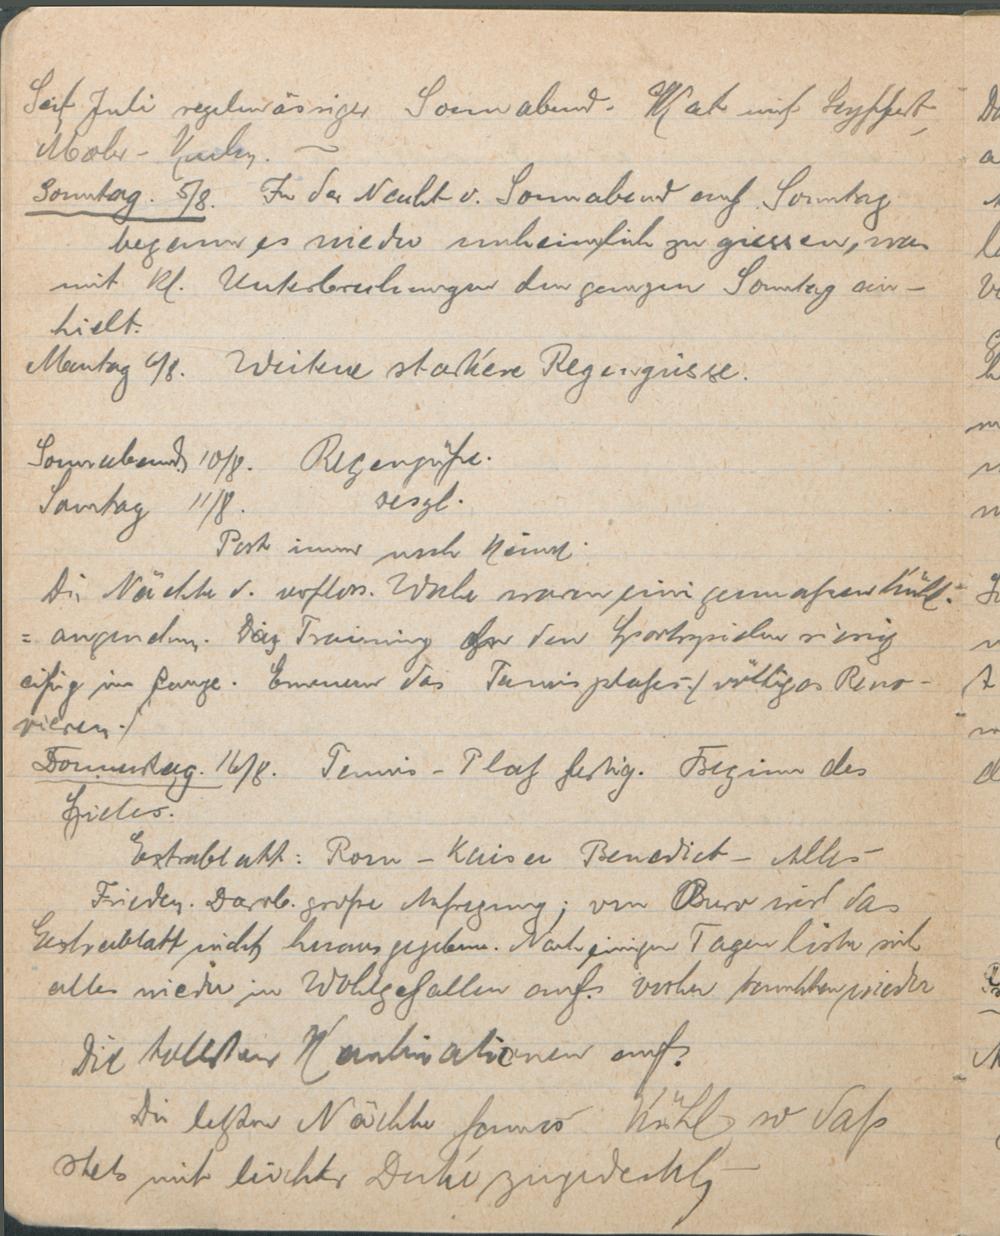 Seit Juli regelmässiger Sonnabend-Skat mit Seyffert,
Mohr -
Sonntag. 5/8. In der Nacht v. Sonnabend auf Sonntag
begann es wieder unheimlich zu giessen, was
mit kl. Unterbrechungen den ganzen Sonntag an-
hielt.
Montag 6/8. Weitere starke Regengüsse.
Sonnabend 10/8. Regengüsse.
Sonntag 11/8. desgl.
Post immer noch keine.
Die Nächte d. verfloss. Woche waren einigermassen kühl-
= angenehm. Das Training der den Sportspielen riesig
eifrig im Gange. Erneuern des Tennisplatzes / völliges Reno-
vieren./
Donnerstag. 16/8. Tennis-Platz fertig. Beginn des
Spieles.
Extrablatt: Rom - Kaiser Benedict - Alles
Frieden. Darob. große Aufregung; vom Büro wird das
Extrablatt nicht herausgegeben. Nach einigen Tagen löste sich
alles wieder in Wohlgefallen auf. vorher tauchten wieder
die tollsten Kombinationen auf.
Die letzten Nächte famos kühl, so daß
stets mit leichter Decke zugedeckt,